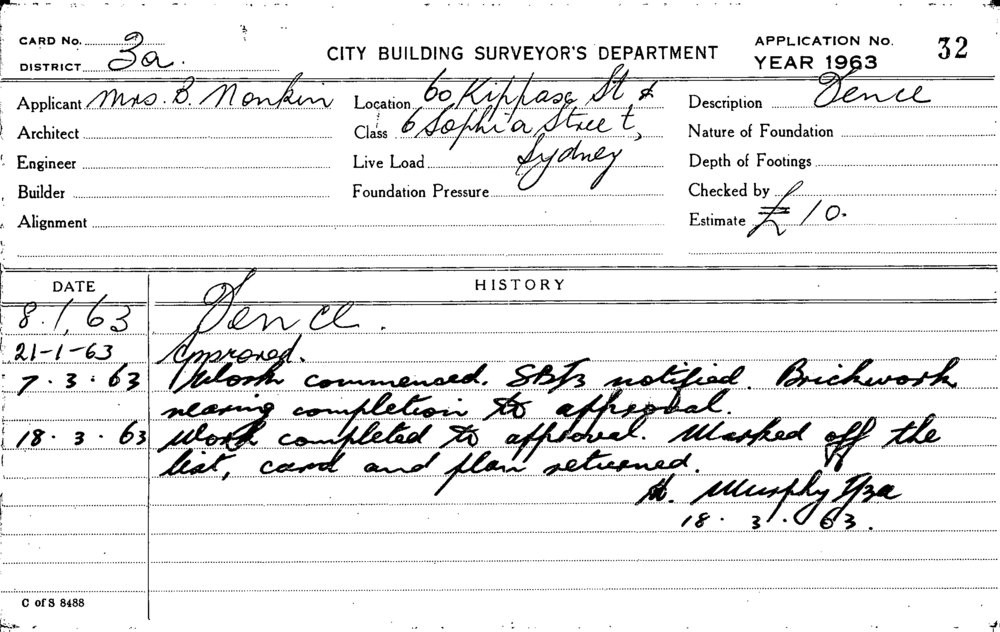 CARD No.
DISTRICT 3a.
CITY BUILDING SURVEYOR'S DEPARTMENT
APPLICATION No. 32
YEAR 1963
Applicant Mrs. B. Nonkin
Location 60 Kippax St &
Description Fence
Architect
Class 6 Sophia Street,
Nature of Foundation
Engineer
Live Load Sydney
Depth of Footings
Builder
Foundation Pressure
Checked by
Alignment
Estimate £10.
DATE
HISTORY
8.1.63 Fence.
21-1-63 Approved.
7.3.63 Work commenced. notified. Brickwork
nearing completion to approval.
18.3.63 Work completed to approval. Marked off the
list, card and plan returned.
Murphy
18.3.63.
C of S 8488